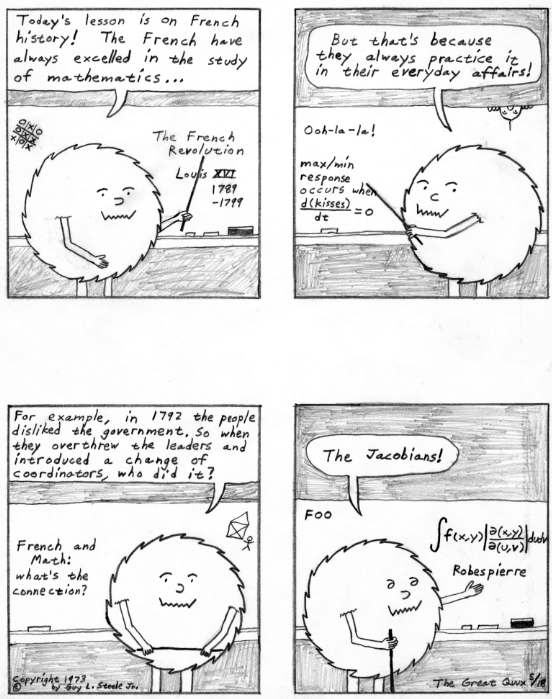 Today's lesson is on French
history! The French have
always excelled in the study
of mathematics...
O|X|O
O|X|X
X|O|X
The French
Revolution
Louis XVI
1789
-1799
But that's because
they always practice it
in their everyday affairs!
Ooh-la-la!
max/min
response
occurs when
d(kisses)
dt
=0
For example, in 1792 the people
disliked the government. So when
they overthrew the leaders and
introduced a change of
coordinators, who did it?
French and
Math:
what's the
connection?
Copyright 1973
© by Guy L. Steele Jr.
The Jacobians!
FOO
∫f(x,y)|∂(x,y)/∂(u,v)|dudv
Robespierre
The Great Quux 5/18